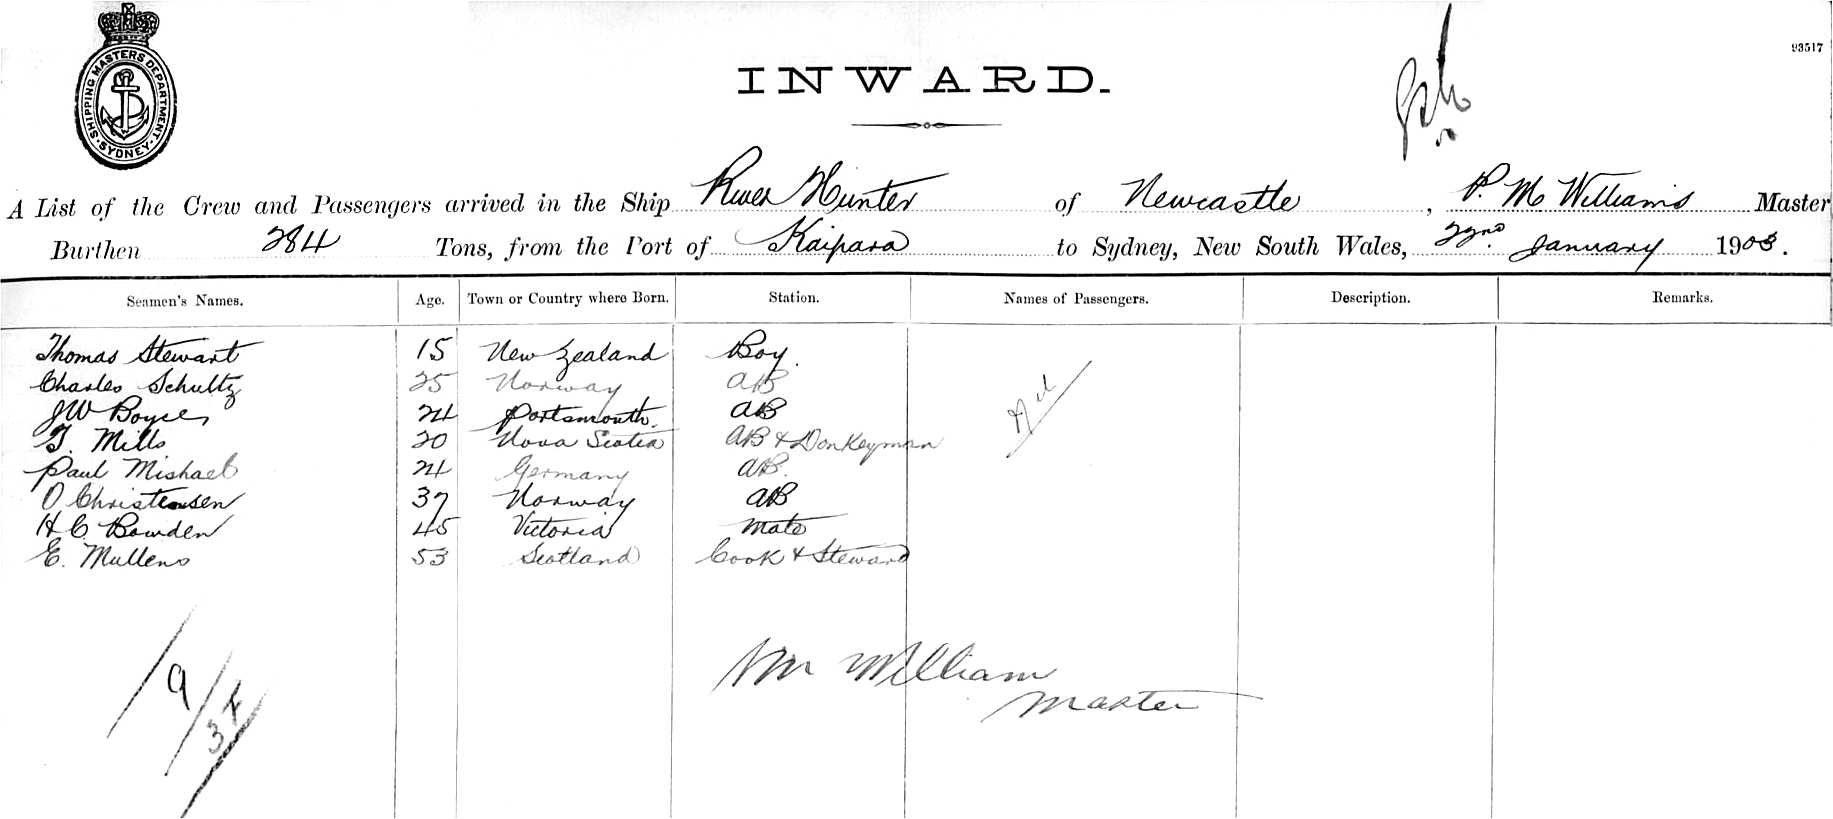 SHIPPING MASTERS DEPARTMENT. SYDNEY.
93517
INWARD.
A List of the Crew and Passengers arrived in the Ship River Hunter of Newcastle, P. M Williams Master
Burthen 284 Tons, from the Port of Kaipara to Sydney, New South Wales, 22nd January 1903.
Seamen's Names. Age. Town or Country where Born. Station. Names of Passengers. Description. Remarks.
Thomas Stewart 15 New Zealand Boy.
Charles Schultz 25 Norway AB
JW Boyce 24 Portsmouth. AB
T. Mills 20 Nova Scotia AB & Donkeyman
Paul Mishael 24 Germany AB.
O Christensen 37 Norway AB
H C. Bowden 45 Victoria Mate
E. Mullens 53 Scotland Cook & Steward
Nil
9
3 F
William
Master